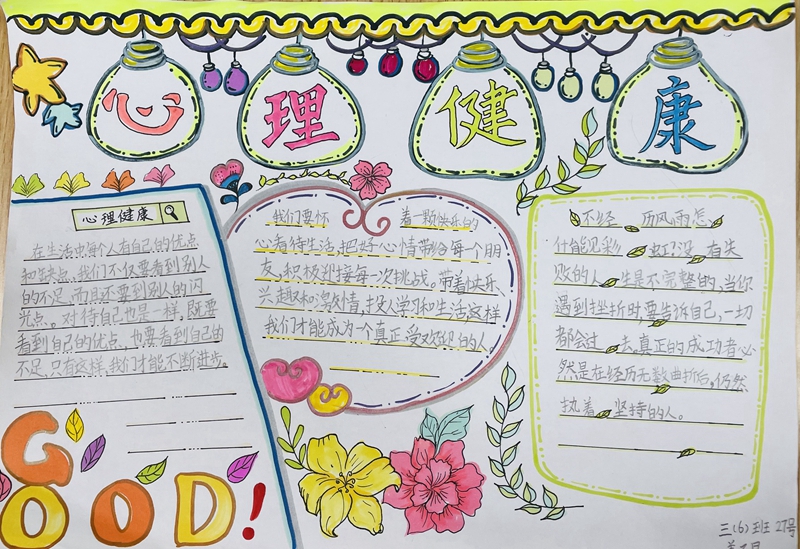 心理健康
心理健康
在生活中每个人有自己的优点
和缺点。我们不仅要看到别人
的不足,而且还要到别人的闪
光点。对待自己也是一样,既要
看到自己的优点,也要看到自己的
不足,只有这样,我们才能不断进步。
我们要怀 着一颗快乐的
心者待生活,把好心情带给每个朋
友,积极迎接每一次挑战。带着快乐、
兴趣和激情,投入学习和生活这样
我们才能成为一个真正受欢迎的人。
不经 历风雨怎
什能见彩 虹?没 有失
败的人 生是不完整的,当你
遇到挫折时,要告诉自己,一切
都会过 去,真正的成功者必
然是在经历无数曲折后,仍然
执着 坚持的人。
GOOD!
三(6)班 27号